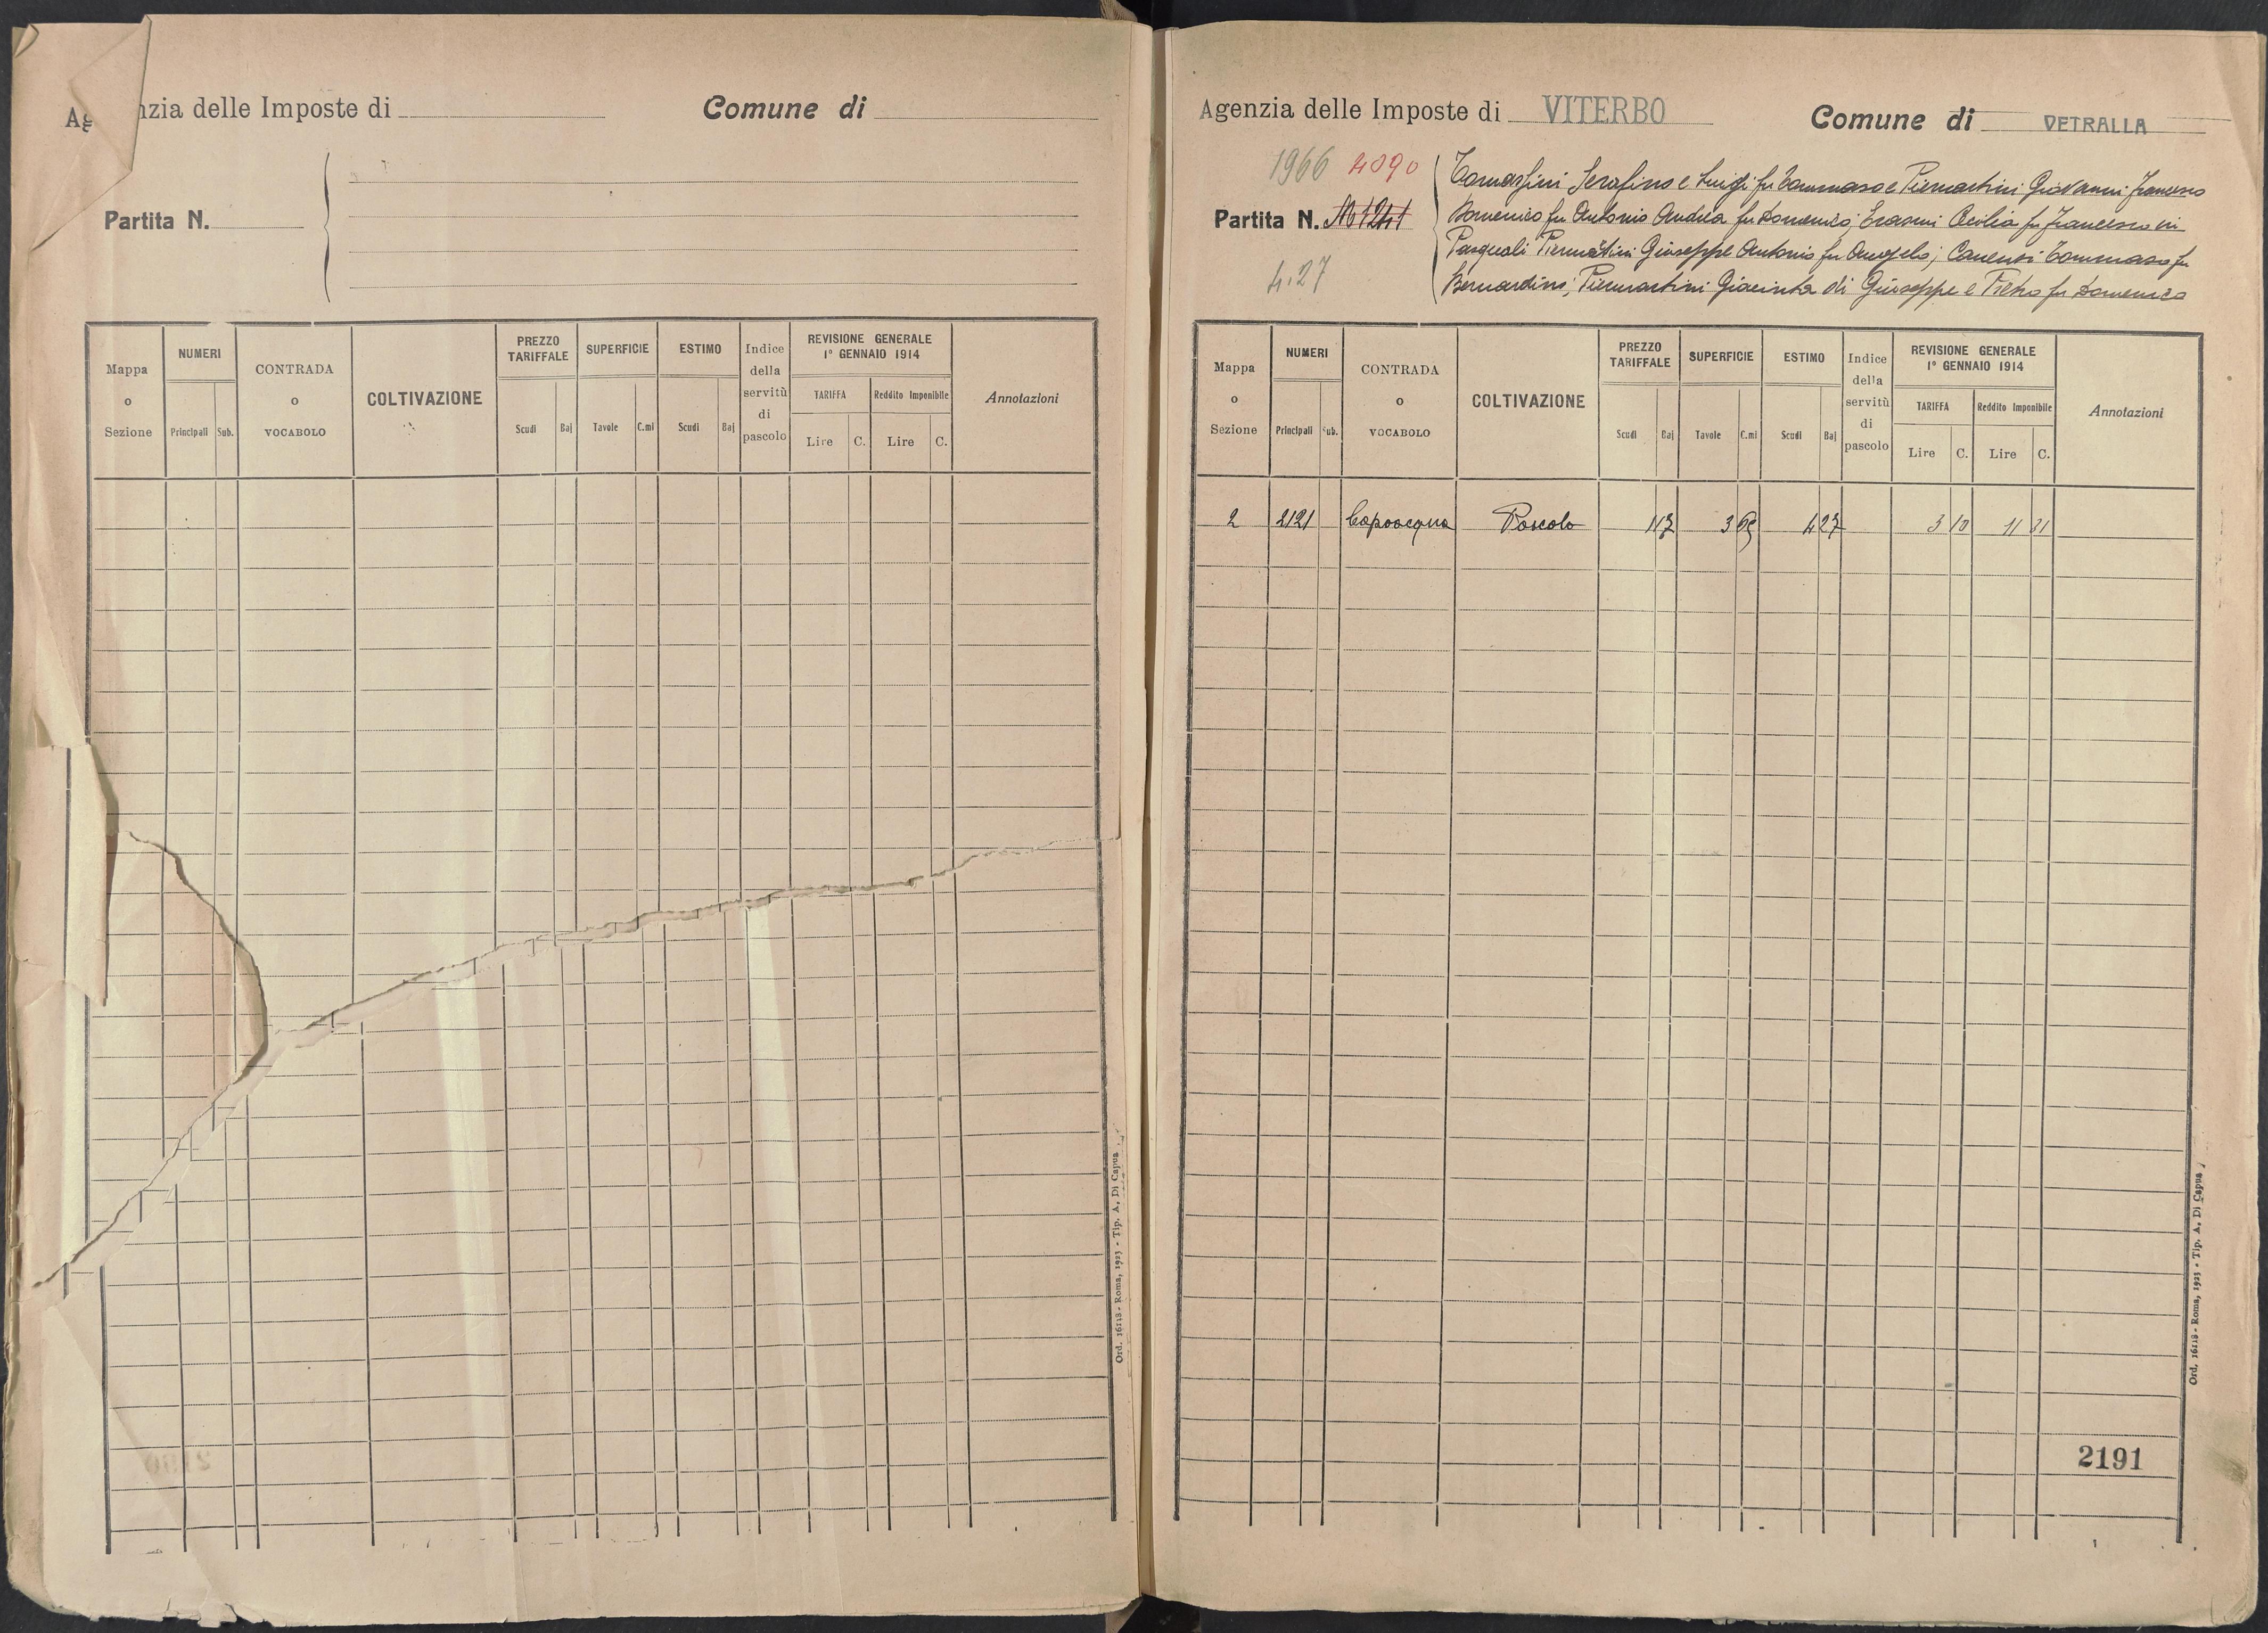 Agenzia delle Imposte di
Comune di
Partita N.
Mappa o Sezione
NUMERI
Principali Sub.
CONTRADA o VOCABOLO
COLTIVAZIONE
PREZZO TARIFFALE
Scudi Baj
SUPERFICIE
Tavole C.mi
ESTIMO
Scudi Baj
Indice della servitù di pascolo
REVISIONE GENERALE
1° GENNAIO 1914
TARIFFA Reddito Imponibile
Lire C. Lire C.
Annotazioni
Ord. 16118 - Roma, 1923 - Tip. A. Di Capua
Agenzia delle Imposte di VITERBO
Comune di VETRALLA
1966 4090
Partita N.
4.27
Tomassini Serafino e Luigi fu Tommaso e Piermartini Giovanni Francesco
Domenico fu Antonio Andrea fu Domenico; Erasmi Cecilia fu Francesco in
Pasquali Piermartini Giuseppe Antonio fu Angelo; Canensi Tommaso fu
Bernardino; Piermartini Giacinta di Giuseppe e Pietro fu Domenico
Mappa o Sezione
NUMERI
Principali Sub.
CONTRADA o VOCABOLO
COLTIVAZIONE
PREZZO TARIFFALE
Scudi Baj
SUPERFICIE
Tavole C.mi
ESTIMO
Scudi Baj
Indice della servitù di pascolo
REVISIONE GENERALE
1° GENNAIO 1914
TARIFFA Reddito Imponibile
Lire C. Lire C.
Annotazioni
2 2121 Capoacqua Pascolo 1 17 3 65 4 27 3 10 11 31
2191
Ord. 16118 - Roma, 1923 - Tip. A. Di Capua